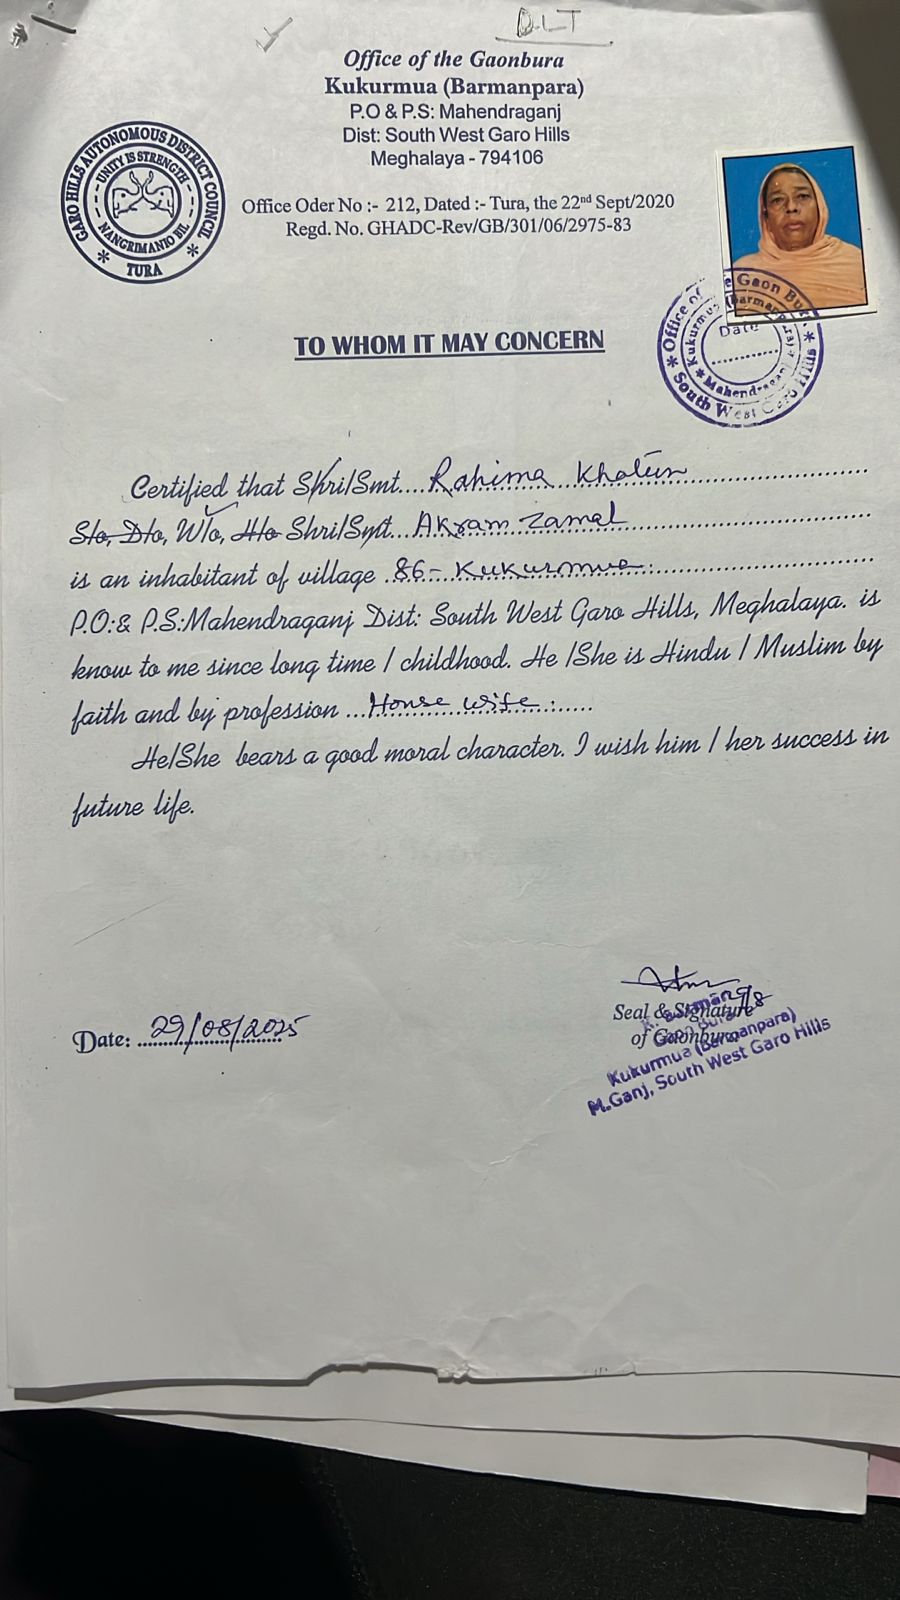 DLT
Office of the Gaonbura
Kukurmua (Barmanpara)
P.O & P.S: Mahendraganj
Dist: South West Garo Hills
Meghalaya - 794106
GARO HILLS AUTONOMOUS DISTRICT COUNCIL
UNITY IS STRENGTH
NANGRIMANIO BIL
* TURA *
Office Oder No :- 212, Dated :- Tura, the 22nd Sept/2020
Regd. No. GHADC-Rev/GB/301/06/2975-83
Office of the Gaon Bura
Kukurmua (Barmanpara)
Date
* Mahendraganj *
* South West Garo Hills *
TO WHOM IT MAY CONCERN
Certified that Shri/Smt....Rahima Khatun
S/o, D/o, W/o, H/o Shri/Smt...Akram Zamal
is an inhabitant of village 86-Kukurmua
P.O:& P.S:Mahendraganj Dist: South West Garo Hills, Meghalaya. is
know to me since long time / childhood. He /She is Hindu / Muslim by
faith and by profession ...House wife......
He/She bears a good moral character. I wish him / her success in
future life.
Date: 29/08/2025
Seal & Signature
of Gaonbura
Gaon Bura
Kukurmua (Barmanpara)
M.Ganj, South West Garo Hills